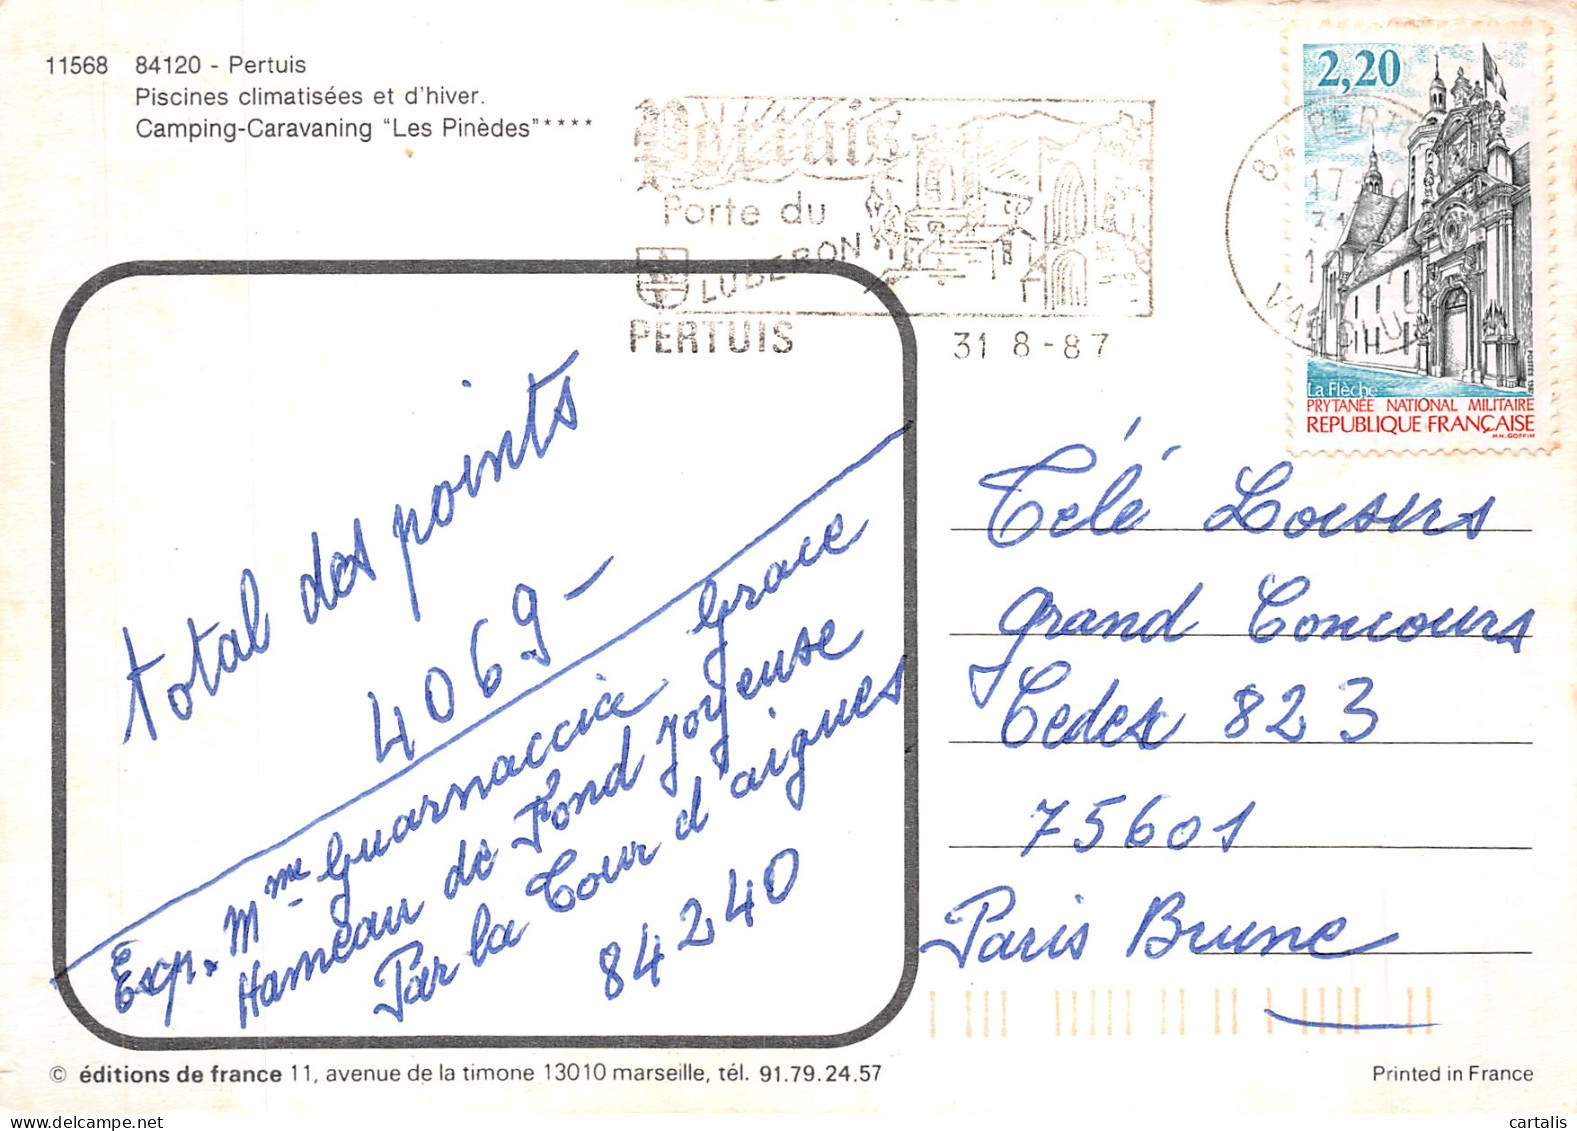 11568 84120 - Pertuis
Piscines climatisées et d'hiver.
Camping-Caravaning "Les Pinèdes"****
Pertuis
Porte du
LUBERON
PERTUIS
31 8 - 87
84 PERTUIS
17
31
VAUCLUSE
2,20
La Flèche
PRYTANÉE NATIONAL MILITAIRE
REPUBLIQUE FRANÇAISE
total des points
4069 -
Exp. Mme Guarnaccia Grace
Hameau de Fond Joyeuse
Par la Tour d'aigues
84240
Télé Loisirs
grand Concours
Cedex 823
75601
Paris Brune
© éditions de france 11, avenue de la timone 13010 marseille, tél. 91.79.24.57
Printed in France
cartalis